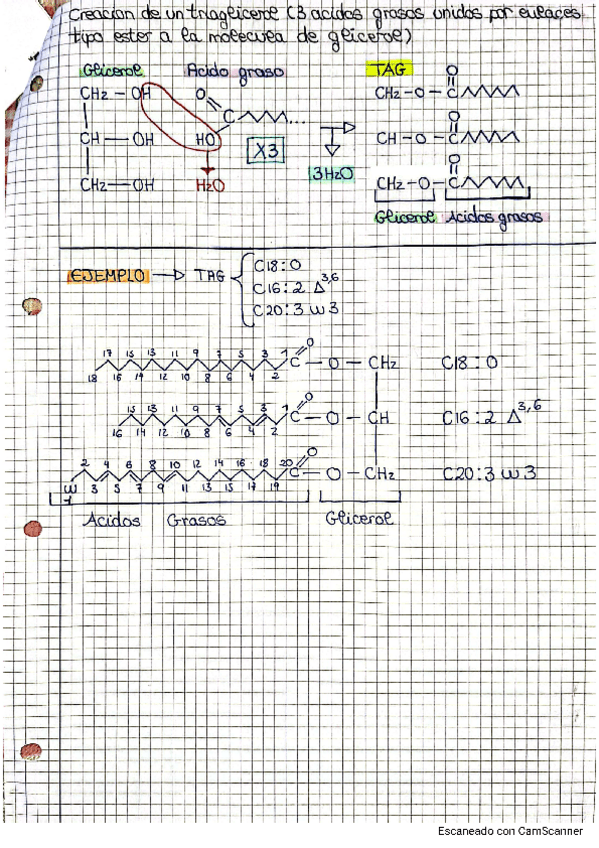 Creación de un triaglicerol (3 ácidos grasos unidos por enlaces
tipo ester a la molécula de glicerol)
Glicerol Ácido graso TAG
CH2 – OH O C ... CH2 – O – C O
CH — OH HO X3 CH – O – C O
CH2 — OH H2O 3H2O CH2 – O – C O
Glicerol Acidos grasos
EJEMPLO → TAG { C18:0
C16:2 Δ3,6
C20:3 ω3
17 15 13 11 9 7 5 3 1 O
C – O – CH2 C18:0
18 16 14 12 10 8 6 4 2
15 13 11 9 7 5 3 1 O
C – O – CH C16:2 Δ3,6
16 14 12 10 8 6 4 2
2 4 6 8 10 12 14 16 18 20 O
C – O – CH2 C20:3 ω3
ω 3 5 7 9 11 13 15 17 19
1
Acidos Grasos Glicerol
Escaneado con CamScanner